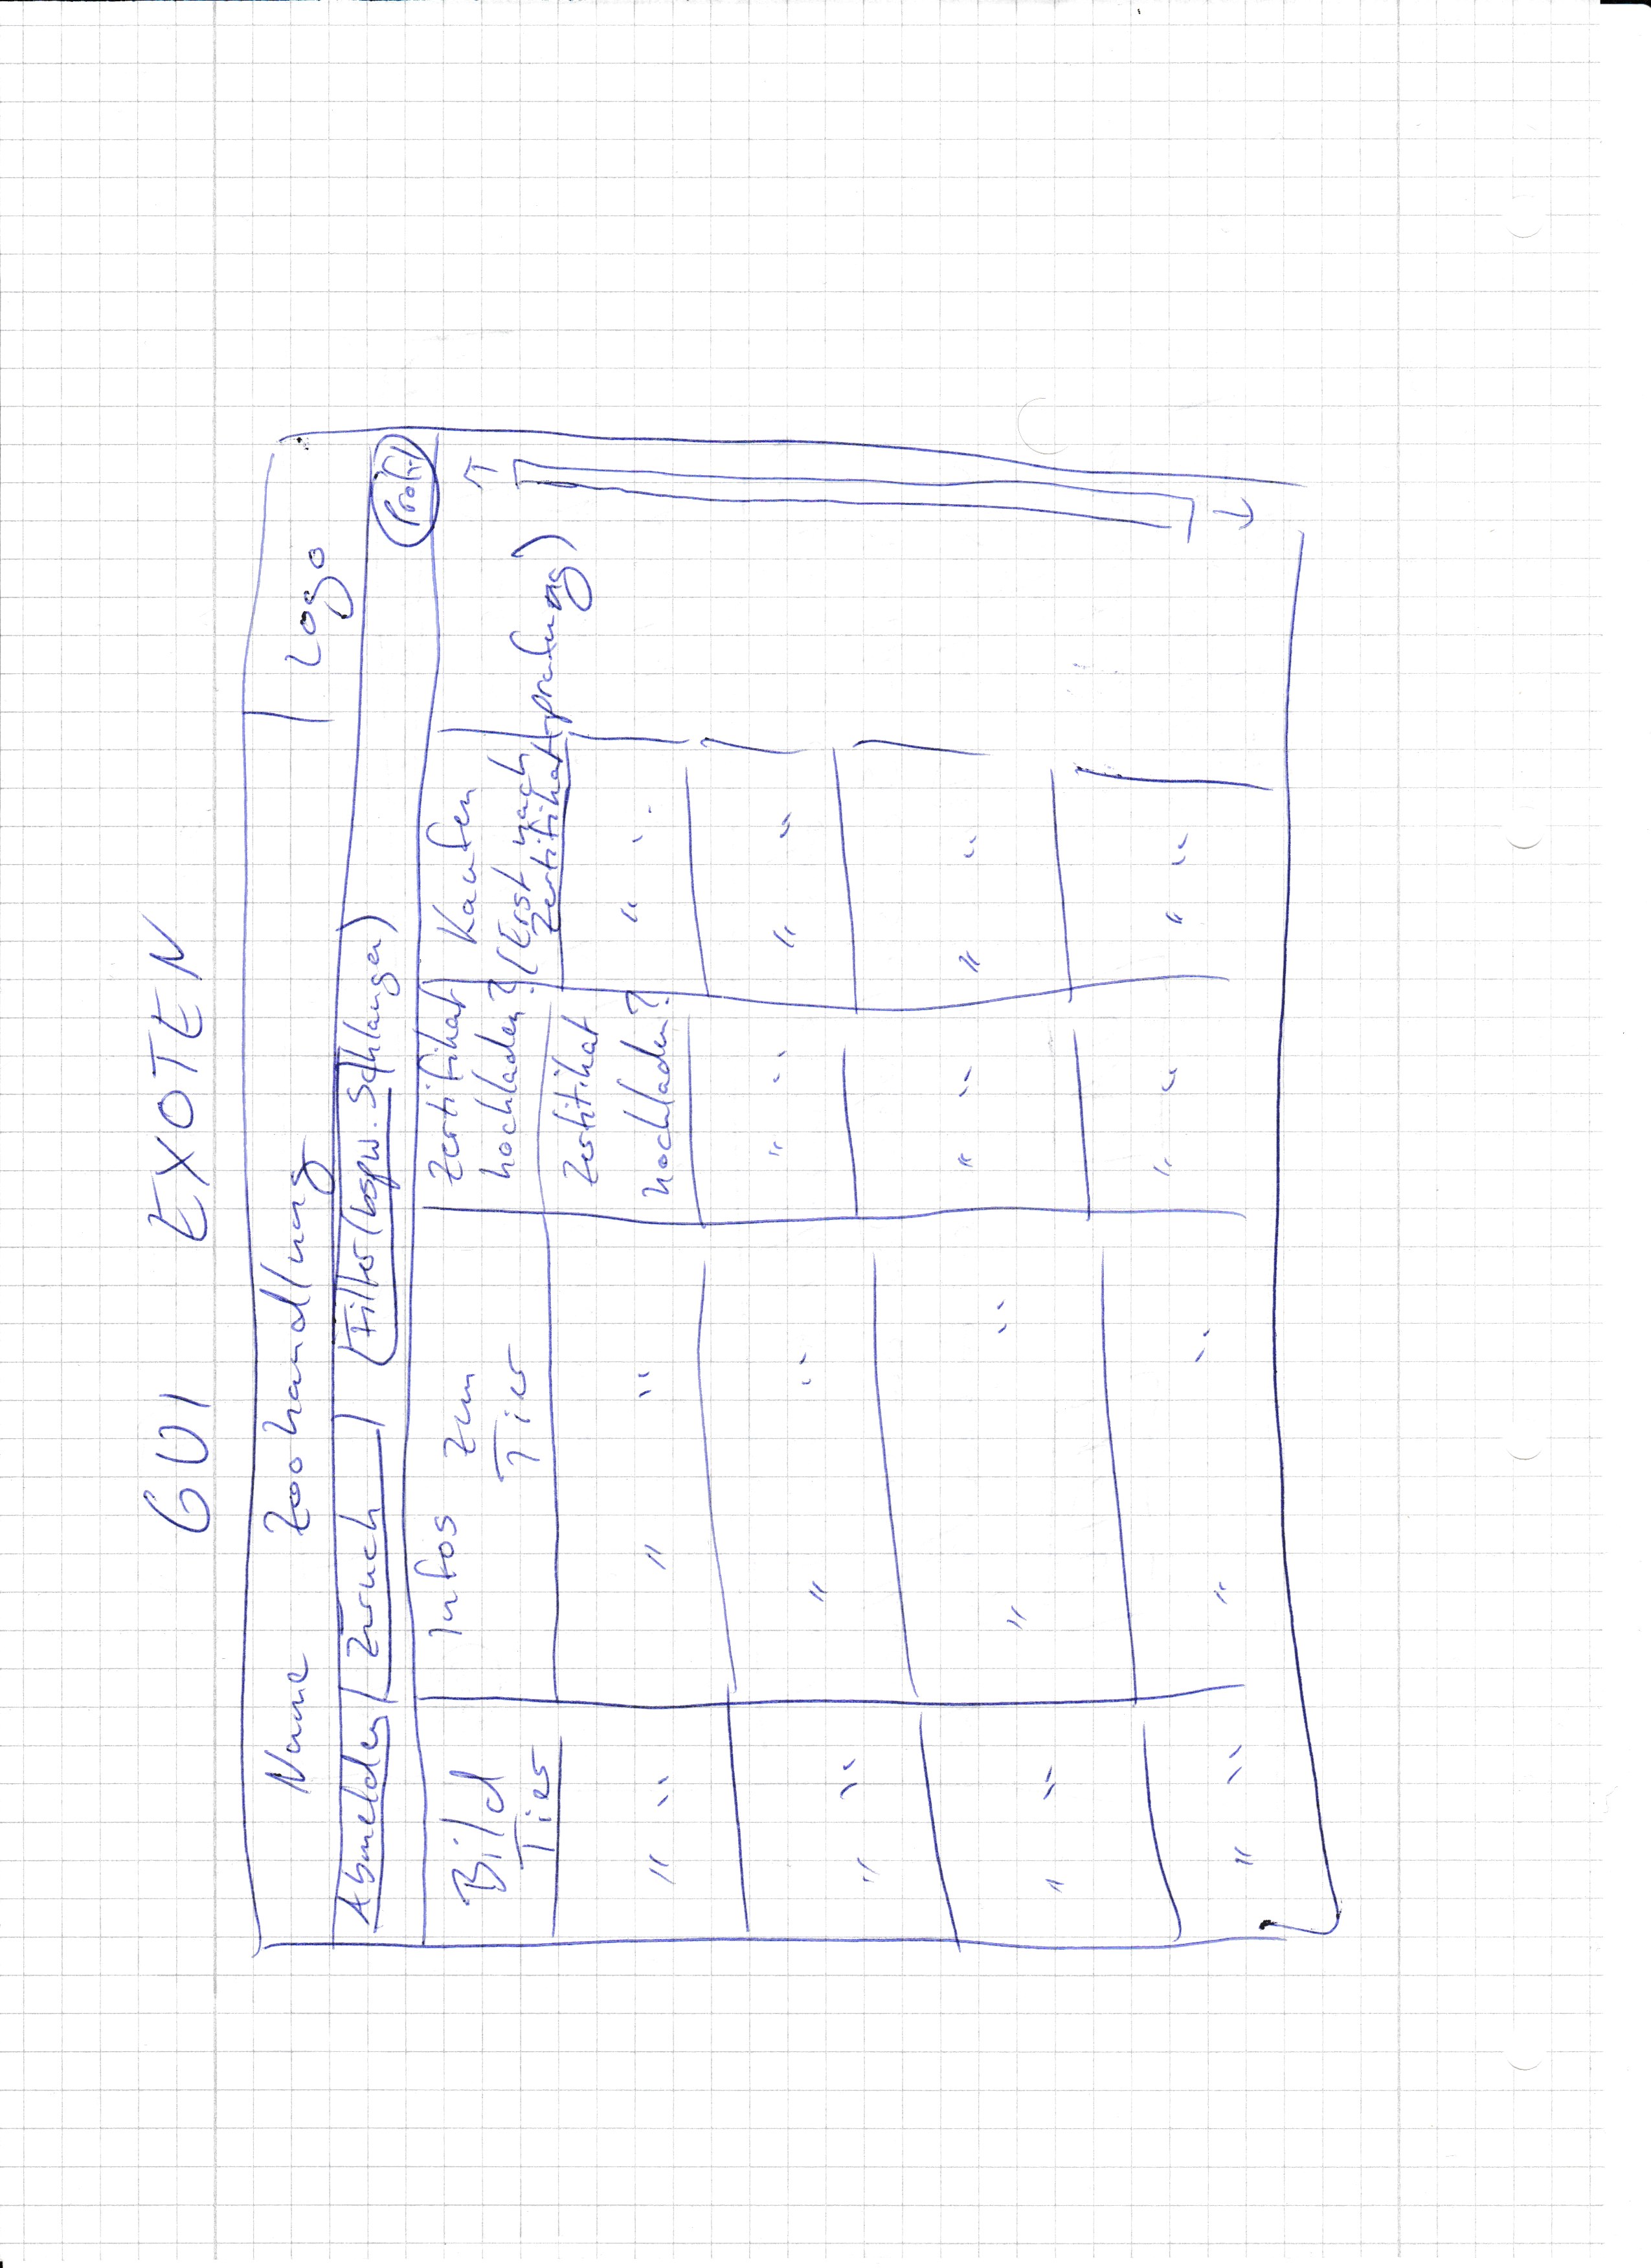 GUI EXOTEN
Name Zoohandlung Logo
Abmelden Zurück Filter (bspw. Schlangen) Profil
Bild
Tier
Infos zum
Tier
Zertifikat
hochladen?
Kaufen
(Erst nach
Zertifikatsprüfung)
" " " " Zertifikat
hochladen? " "
" " " " " " " "
" " " " " " " "
" " " " " " " "